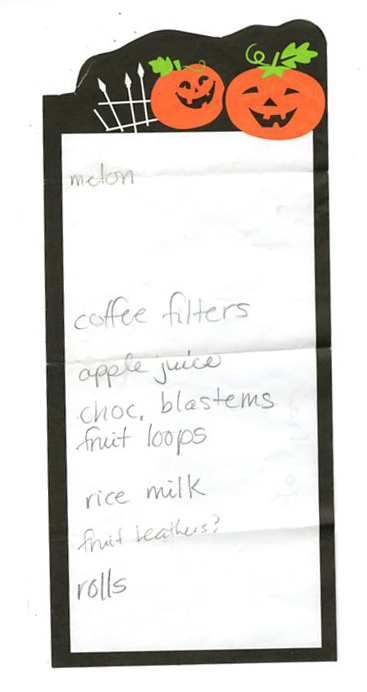 melon
coffee filters
apple juice
choc. blastems
fruit loops
rice milk
fruit leathers?
rolls